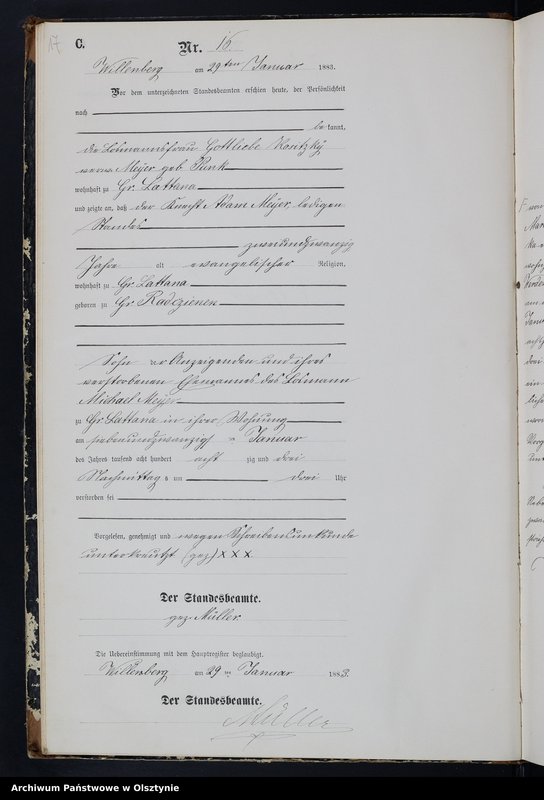 17
C.
Nr. 16.
Willenberg am 29ten Januar 1883.
Vor dem unterzeichneten Standesbeamten erschien heute, der Persönlichkeit
nach
be kannt,
die Losmannsfrau Gottliebe Koritzky
verw. Meyer geb. Funk
wohnhaft zu Gr. Lattana
und zeigte an, daß der Knecht Adam Meyer, ledigen
Standes
zweiundzwanzig
Jahre alt evangelischer Religion,
wohnhaft zu Gr. Lattana
geboren zu Gr. Radczienen
Sohn der Anzeigenden und ihres
verstorbenen Ehemannes des Losmann
Michael Meyer
zu Gr. Lattana in ihrer Wohnung
am siebenundzwanzig Januar
des Jahres tausend acht hundert acht zig und drei
Nachmittag s um drei Uhr
verstorben sei
Vorgelesen, genehmigt und wegen Schreibensunkunde
unterkreuzt (gez) XXX
Der Standesbeamte.
gez. Müller.
Die Uebereinstimmung mit dem Hauptregister beglaubigt.
Willenberg am 29 ten Januar 1883.
Der Standesbeamte.
Müller
Archiwum Państwowe w Olsztynie